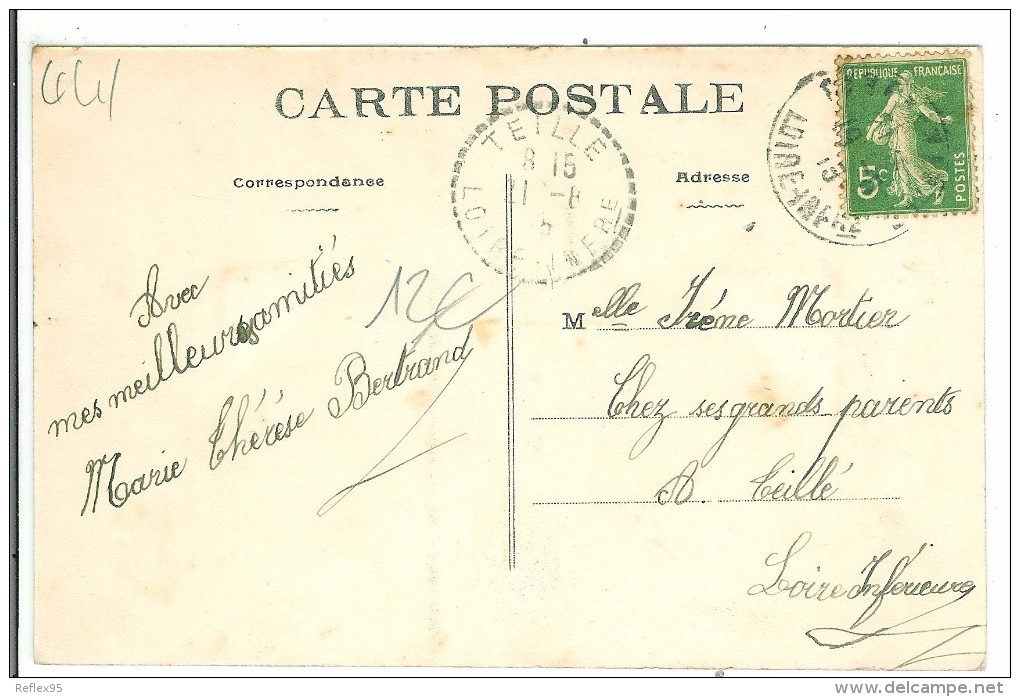 CARTE POSTALE
Correspondance
Adresse
RÉPUBLIQUE FRANÇAISE
5c
POSTES
TEILLE
8 15
LOIRE INFRE
12€
Avec
mes meilleures amitiés
Marie Thérèse Bertrand
Melle Irène Mortier
Chez ses grands parents
A. Teillé
Loire Inférieure
Reflex95
www.delcampe.net